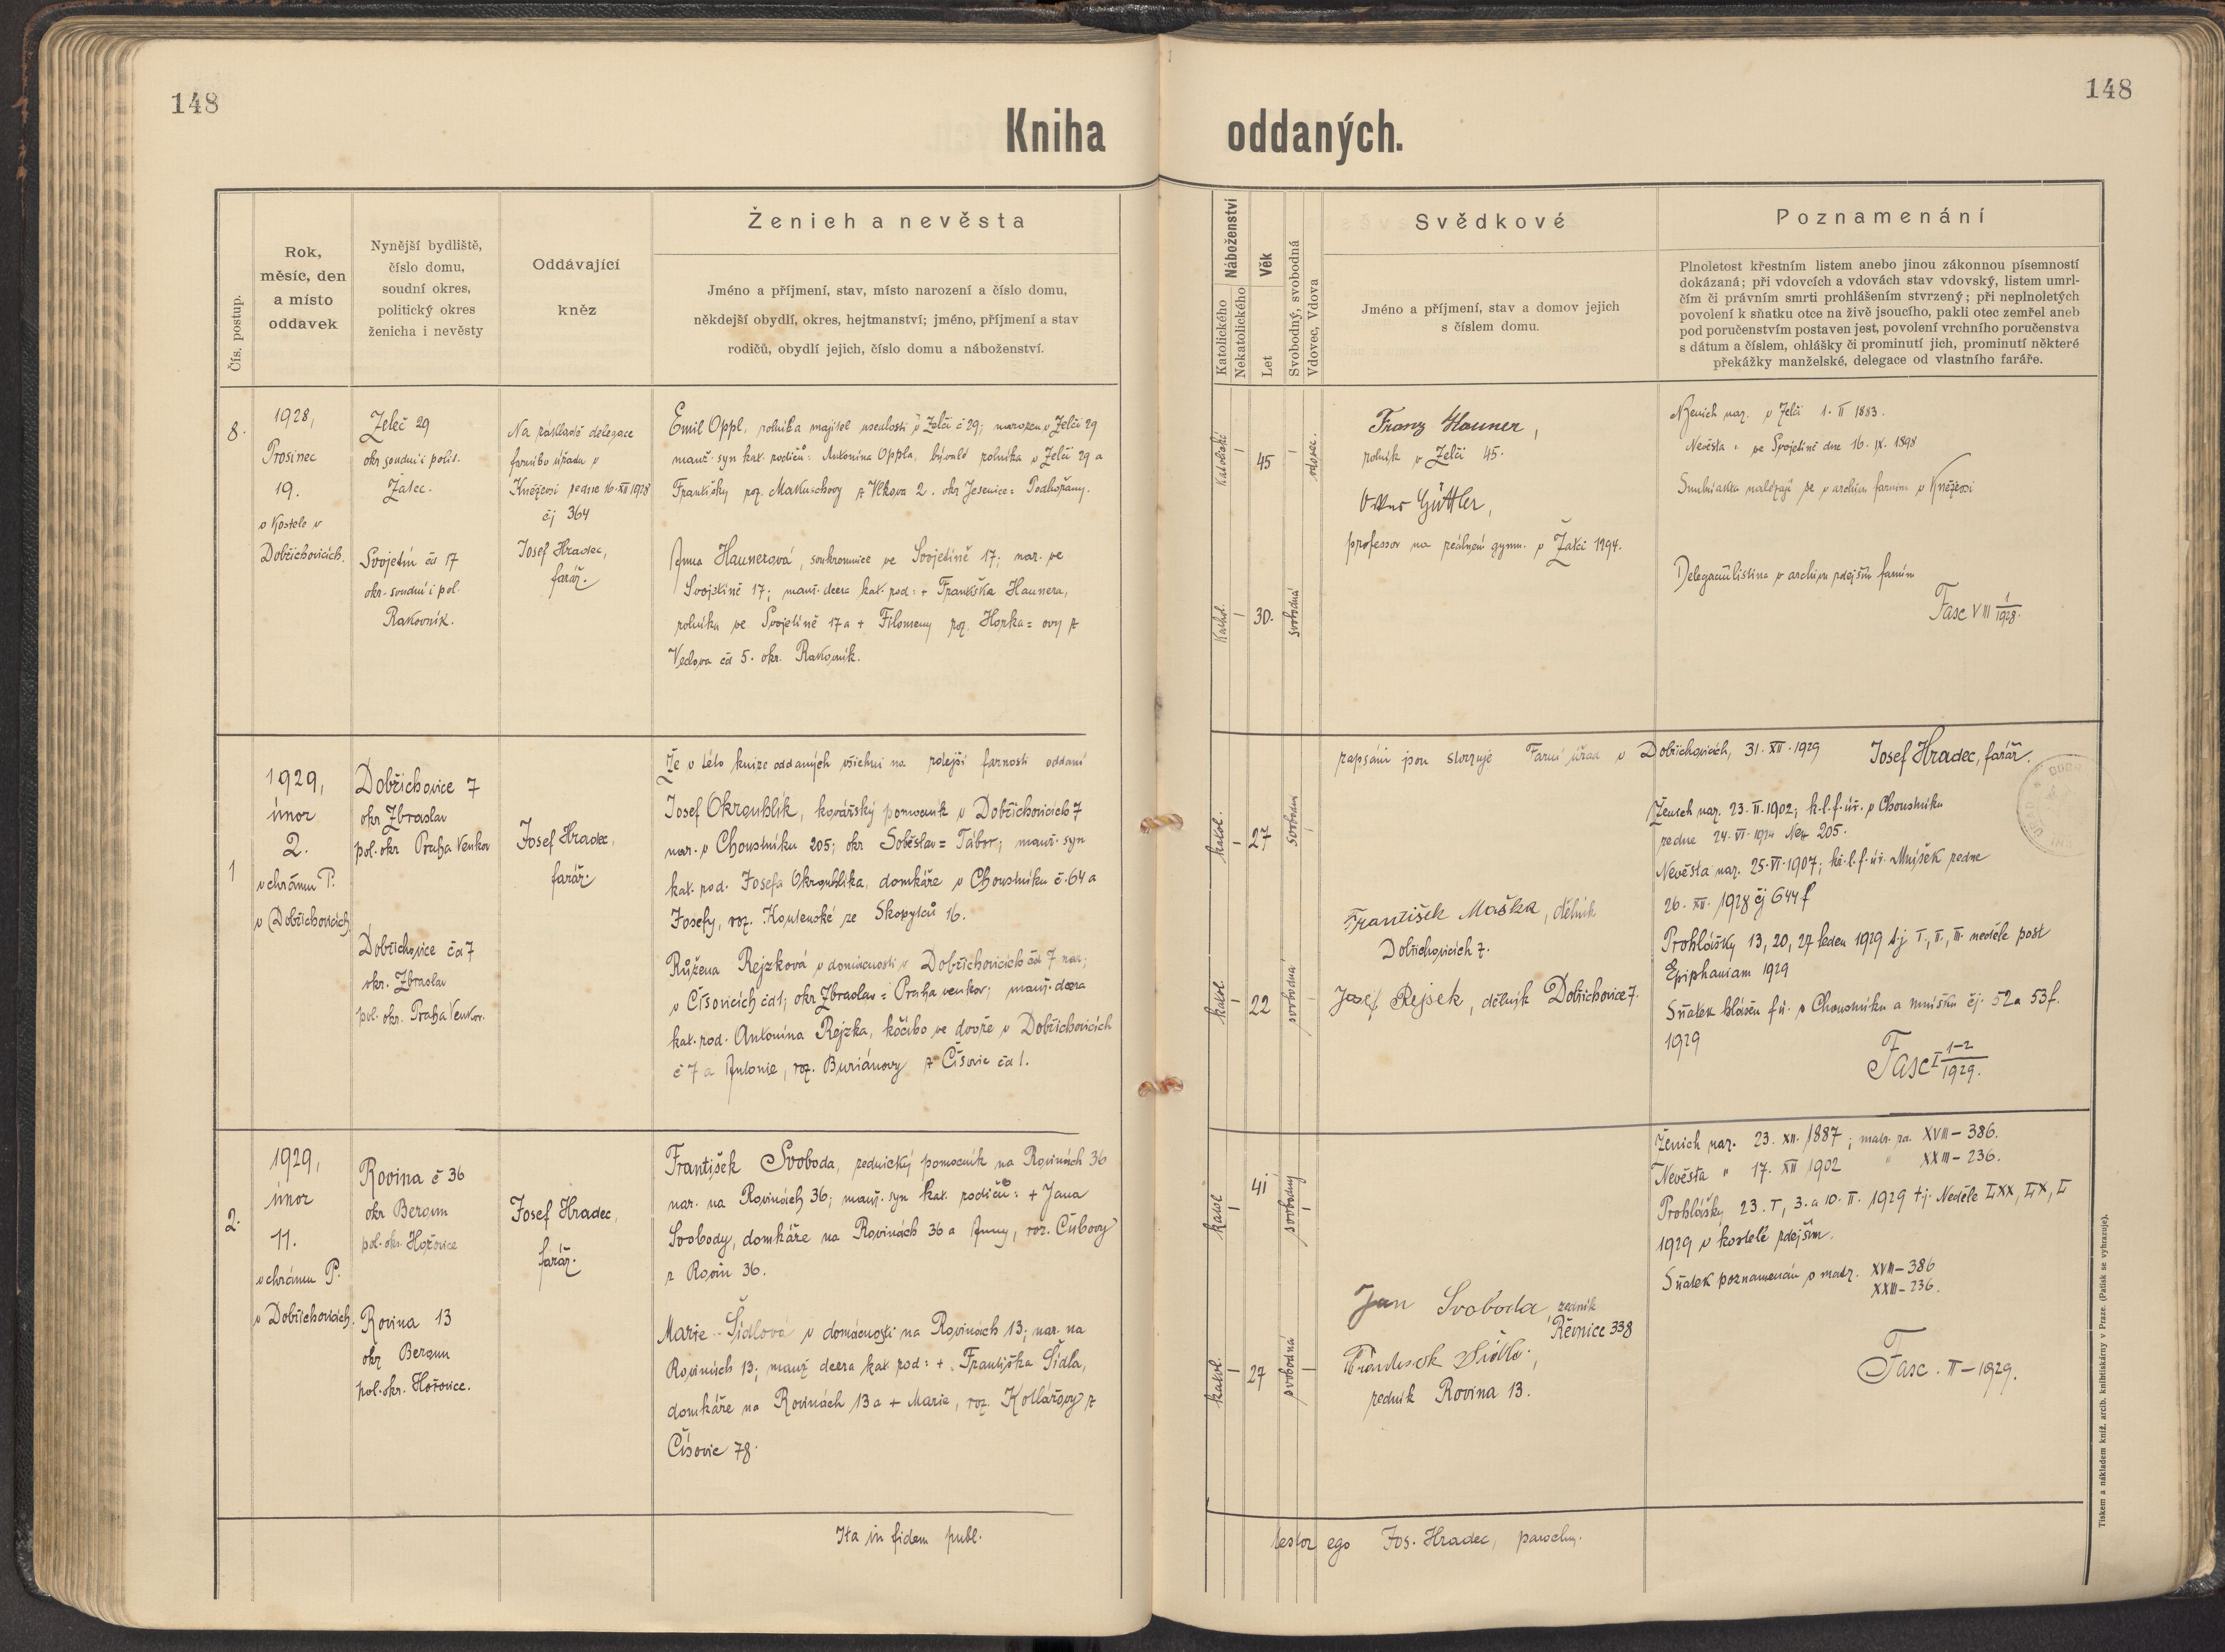 148
148
Kniha oddaných.
Čís. postup.
Rok,
měsíc, den
a místo
oddavek
Nynější bydliště,
číslo domu,
soudní okres,
politický okres
ženicha i nevěsty
Oddávající
kněz
Ženich a nevěsta
Jméno a příjmení, stav, místo narození a číslo domu,
někdejší obydlí, okres, hejtmanství; jméno, příjmení a stav
rodičů, obydlí jejich, číslo domu a náboženství.
Náboženství
Katolického
Nekatolického
Věk
Let
Svobodný, svobodná
Vdovec, Vdova
Svědkové
Jméno a příjmení, stav a domov jejich
s číslem domu.
Poznamenání
Plnoletost křestním listem anebo jinou zákonnou písemností
dokázaná; při vdovcích a vdovách stav vdovský, listem umrl-
čím či právním smrti prohlášením stvrzený; při neplnoletých
povolení k sňatku otce na živě jsoucího, pakli otec zemřel aneb
pod poručenstvím postaven jest, povolení vrchního poručenstva
s dátum a číslem, ohlášky či prominutí jich, prominutí některé
překážky manželské, delegace od vlastního faráře.
8.
1928,
Prosinec
19.
v kostele v
Dobřichovicích.
Želeč 29
okr soudní i polit.
Žatec.
Svojetín čd 17
okr. soudní i pol.
Rakovník.
Na základě delegace
farního úřadu v
Kněževsi ze dne 16. XII 1928
čj 364
Josef Hradec,
farář.
Emil Oppl, rolník a majitel usedlosti v Želči č 29; narozen v Želči 29
manž. syn kat. rodičů: Antonína Oppla, bývalé rolníka v Želči 29 a
Františky roz. Makuschovy z Vlkova 2. okr Jesenice = Podbořany.
Anna Haunerová, soukromnice ve Svojetíně 17; nar. ve
Svojetíně 17; manž. dcera kat. rod: + Františka Haunera,
rolníka ve Svojetíně 17 a + Filomeny roz. Horka = ovy z
Vedova čd 5. okr. Rakovník.
Katolické
45
vdovec.
Kathol.
30.
svobodná
Franz Hauner,
rolník v Želči 45.
Güttler,
professor na reálném gymn. v Žatci 1294.
Ženich nar. v Želči 1. II 1883.
Nevěsta " ve Svojetíně dne 16. IX. 1898
nalézají se v archivu farním v Kněževsi
Delegační listina v archivu zdejším farním
Fasc VIII 1/1928.
1
1929,
únor
2.
v chrámu P.
v Dobřichovicích
Dobřichovice 7
okr Zbraslav
pol. okr Praha Venkov
Dobřichovice čd 7
okr. Zbraslav
pol. okr. Praha Venkov.
Josef Hradec,
farář.
Že v této knize oddaných všichni na zdejší farnosti oddaní
zapsáni jsou stvrzuje Farní úřad v Dobřichovicích, 31. XII. 1929 Josef Hradec, farář.
Josef Okrouhlík, kovářský pomocník v Dobřichovicích 7
nar. v Choustníku 205; okr Soběslav = Tábor; manž. syn
kat. rod. Josefa Okrouhlíka, domkáře v Choustníku č. 64 a
Josefy, roz. Koutenské ze Skopytců 16.
Růžena Rejzková v domácnosti v Dobřichovicích čd 7 nar;
v Čísovicích čd 1; okr Zbraslav = Praha venkov; manž. dcera
kat. rod. Antonína Rejzka, kočího ve dvoře v Dobřichovicích
č 7 a Antonie, roz. Buriánovy z Čísovic čd 1.
katol.
27
svobodný
katol
22
svobodná
František Maška, dělník
Dobřichovicích 7.
Josef Rejsek, dělník Dobřichovice 7.
Ženich nar. 23. II. 1902; k. l. f. úř. v Choustníku
ze dne 24. VI. 1914 205.
Nevěsta nar. 25. VI. 1907; kř. l. f. úř. Mníšek ze dne
26. XII. 1928 čj 644 f
Prohlášky 13, 20, 27 leden 1929 tj I., II., III. neděle post
Epiphaniam 1929
Sňatek hlášen f ú. v Choustníku a Mníšku čj. 52 a 53 f.
1929
Fasc I 1-2/1929.
2.
1929,
únor
11.
v chrámu P.
v Dobřichovicích.
Rovina č 36
okr Beroun
pol. okr. Hořovice
Rovina 13
okr Beroun
pol. okr. Hořovice.
Josef Hradec,
farář.
František Svoboda, zednický pomocník na Rovinách 36
nar. na Rovinách 36; manž. syn kat. rodičů: + Jana
Svobody, domkáře na Rovinách 36 a Anny, roz. Čubovy
z Rovin 36.
Marie Šídlová v domácnosti na Rovinách 13; nar. na
Rovinách 13; manž dcera kat rod: + Františka Šídla,
domkáře na Rovinách 13 a + Marie, roz. Kollářovy z
Čísovic 78.
katol
41
svobodný
katol.
27
svobodná
Jan Svoboda, zedník
Řevnice 338
František Šídlo,
zedník Rovina 13.
Ženich nar. 23. XII. 1887; matr. zd. XVIII – 386.
Nevěsta " 17. XII 1902 " XXIII – 236.
Prohlášky 23. I, 3. a 10. II. 1929 tj. Neděle LXX, LX, L
1929 v kostele zdejším.
Sňatek poznamenán v matr. XVIII – 386
XXIII – 236.
Fasc. II – 1929.
Ita in fidem publ. testor ego Jos. Hradec, parochus.
Tiskem a nákladem kníž. arcib. knihtiskárny v Praze. (Patisk se vyhrazuje).